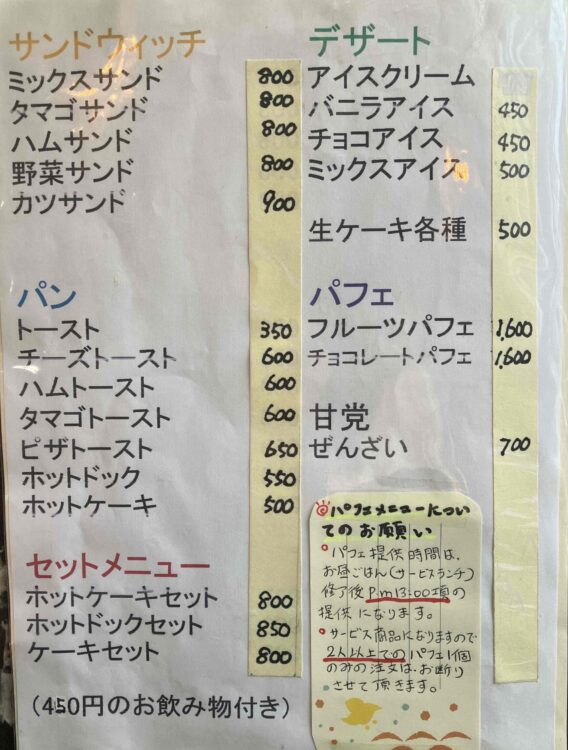 サンドウィッチ
ミックスサンド 800
タマゴサンド 800
ハムサンド 800
野菜サンド 800
カツサンド 900
パン
トースト 350
チーズトースト 600
ハムトースト 600
タマゴトースト 600
ピザトースト 650
ホットドック 550
ホットケーキ 500
セットメニュー
ホットケーキセット 800
ホットドックセット 850
ケーキセット 800
（450円のお飲み物付き）
デザート
アイスクリーム
バニラアイス 450
チョコアイス 450
ミックスアイス 500
生ケーキ各種 500
パフェ
フルーツパフェ 1,600
チョコレートパフェ 1,600
甘党
ぜんざい 700
パフェメニューについ
てのお願い
パフェ提供時間は、
お昼ごはん(サービスランチ)
修了後P.m13:00頃の
提供になります。
サービス商品になりますので
2人以上でのパフェ1個
のみの注文は、お断り
させて頂きます。